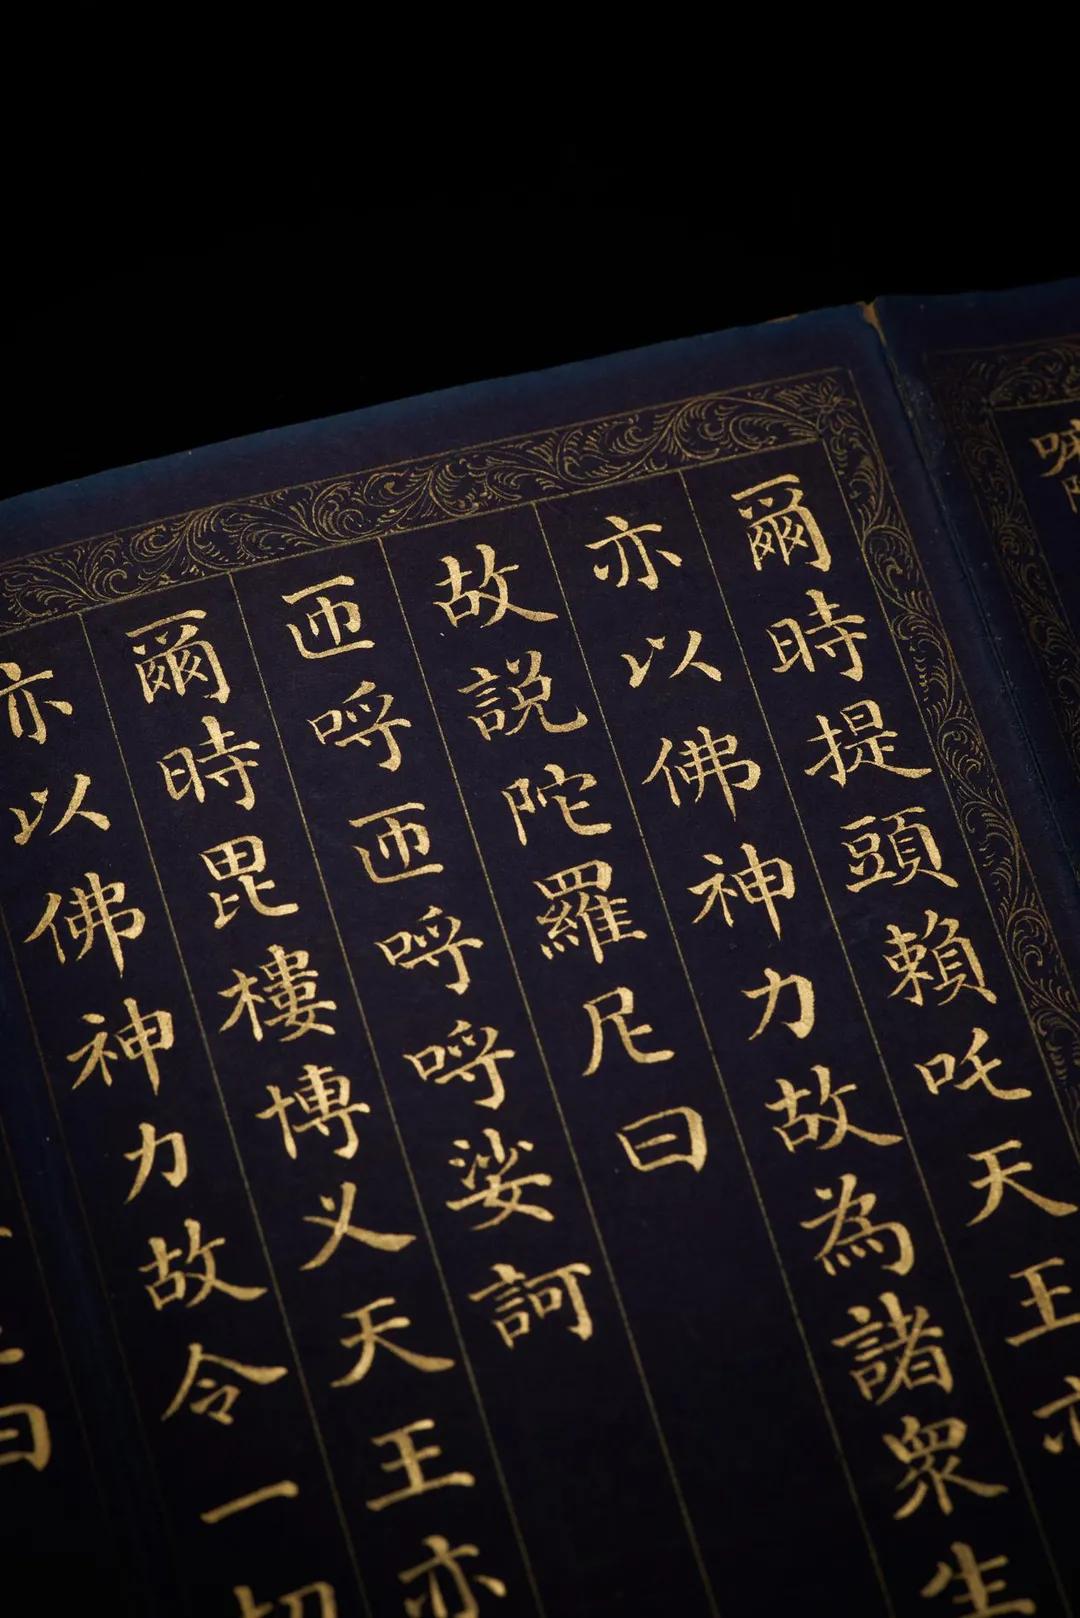 爾時提頭賴吒天王亦
亦以佛神力故為諸眾生
故説陀羅尼曰
匝呼匝呼呼娑訶
爾時毘樓博义天王亦
亦以佛神力故令一切
曰